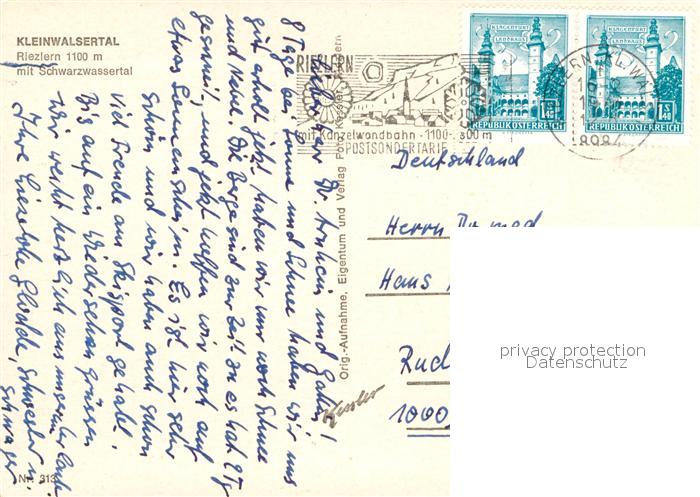 KLEINWALSERTAL
Riezlern 1100 m
mit Schwarzwassertal
RIEZLERN
mit Kanzelwandbahn · 1100-
00 m
POSTSONDERTARIF
KLAGENFURT
LANDHAUS
1S 40
REPUBLIK ÖSTERREICH
KLAGENFURT
LANDHAUS
1S 40
REPUBLIK ÖSTERREICH
8984
Orig.-Aufnahme, Eigentum und Verlag Foto Kessler
Herr Dr. Arnheim und Gattin!
8 Tage bei Sonne und Schnee haben wir uns
gut erholt, jetzt haben wir nur noch Schnee
und Nebel. Die Berge sind zur Zeit zu es hat 2 Tg
geschneit, und jetzt hoffen wir noch auf
etwas Sonnenschein. Es ist hier sehr
schön und wir haben auch schon
viel Freude am Skisport gehabt.
Bis auf ein Wiedersehen grüssen
wir recht herzlich aus unserem Urlaub
Ihre Lieselotte Schwester u.
Schwager
Deutschland
Herrn Dr. med
Hans
Rud
1000
Kessler
privacy protection
Datenschutz
Nr. 313